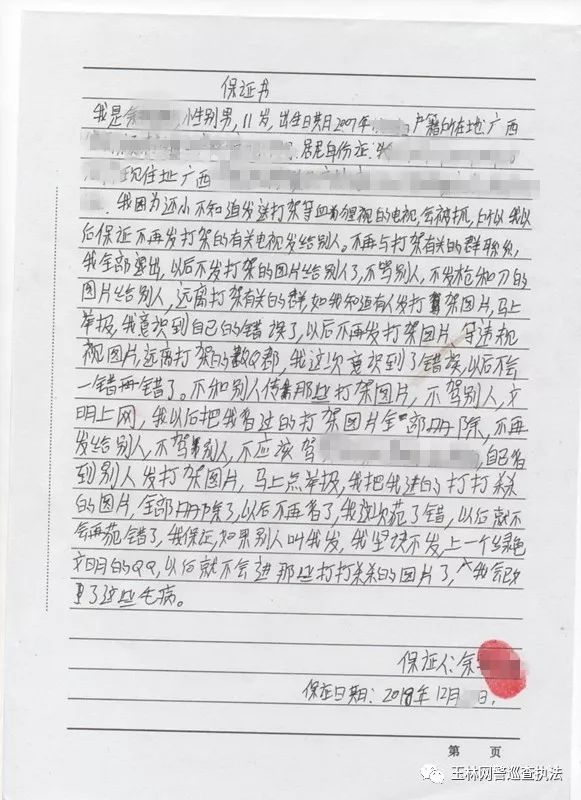 保证书
我是余 小性别男,11岁,出生日期2007年 户籍所在地:广西
居民身份证:
现住址广西
我因为还小不知道发送打架等血 视的电视,会被抓,所以我以
后保证不再发打架的有关电视发给别人。不再与打架有关的群联系,
我全部退出,以后不发打架的图片给别人了,不驾别人,不发枪和刀的
图片给别人,远离打架有关的群,如我知道有人发打架图片,马上
举报,我意识到自己的错误了,以后不再发打架图片,导违规
视图片,远离打架的QQ群,我这次意识到了错误,以后不会
一错再错了。不和别人传那些打架图片,不驾别人,文
明上网,我以后把我看过的打架图片全部册除,不再
发给别人,不驾别人,不应该驾 ,自己看
到别人发打架图片,马上点举报,我把我进的打打杀杀
的图片,全部册除了,以后不再看了,我这次范了错,以后就不
会再范错了,我保证,如果别人叫我发,我坚决不发,上一个绿色
文明的QQ,以后就不会进那些打打杀杀的图片了,我会改
了这些毛病。
保证人:余
保证日期:2018年12月 日.
第 页
玉林网警巡查执法